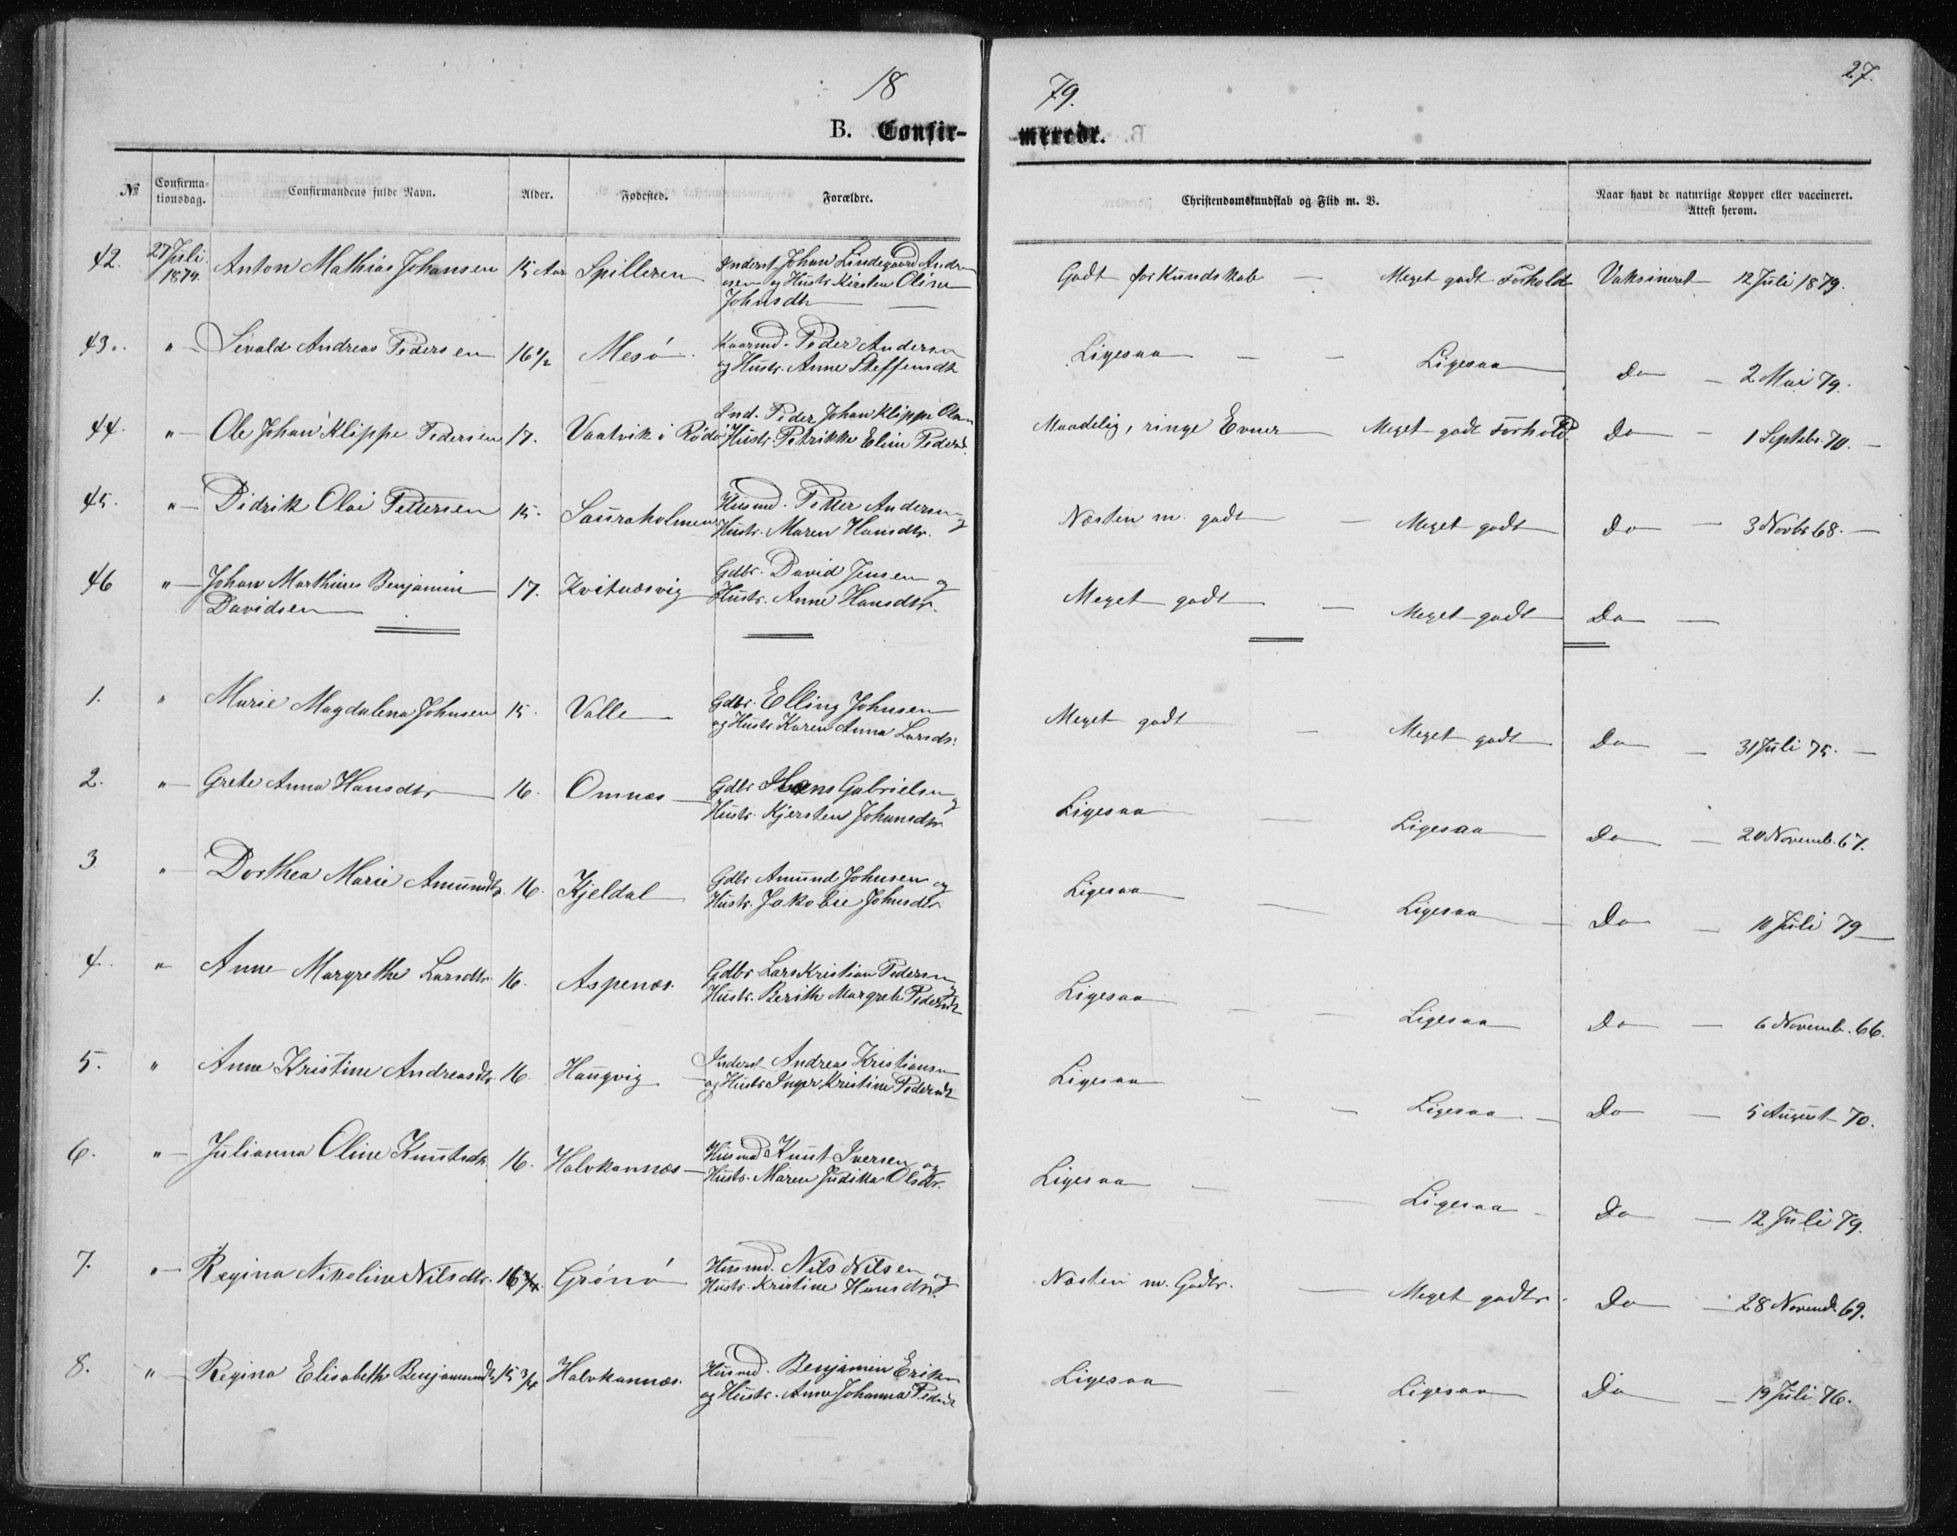 18 79. 27.
B. Confir- merede.
№ Confirma-tionsdag. Confirmandens fulde Navn. Alder. Fødested. Forældre. Christendomskundskab og Flid m. V. Naar havt de naturlige Kopper eller vaccineret. Attest herom.
42. 27 Juli 1879. Anton Mathias Johansen 15 Aar Spilleren Inderst Johan Lindegaard Andre- Godt for Kundskab — Meget godt Forhold Vaksineret 12 Juli 1879.
sen og Hustr. Kirsten Oline
Johnsdtr
43. " Sivald Andreas Pedersen 16 1/2 Mesø Kaarmd. Peder Andersen Ligesaa — — Ligesaa Do — 2 Mai 79.
og Hustr. Anne Steffensdt
44. " Ole Johan Klippe Pedersen 17. Vaatvik i Rødø Ind. Peder Johan Klippe Olsen Maadelig, ringe Evner Meget godt Forhold. Do — 1 Septebr. 70.
Hustr. Petrikke Elin Pedersd.
45. " Didrik Olai Pettersen 15. Sauraholmen Husmd. Petter Andersen og Næsten m. godt — Meget godt Do — 3 Novbr 68.
Hustr. Maren Hansdtr.
46 " Johan Marthines Benjamin 17. Kvitnæsvig Gdbr. David Jensen og Meget godt — Meget godt Do —
Davidsen Hustr. Anne Hansdtr.
1. " Marie Magdalena Johnsen 15. Valle Gdbr. Elling Johnsen Meget godt — Meget godt Do — 31 Juli 75.
og Hustr. Karen Anna Larsdr.
2. " Grete Anna Hansdtr 16. Omnæs Gdbr. Hans Gabrielsen og Ligesaa — Ligesaa Do — 20 Novemb. 67.
Hustr. Kjersten Johansdtr
3 " Dorthea Marie Amundtr. 16. Kjeldal Gdbr. Amund Johnsen og Ligesaa — Ligesaa Do — 10 Juli 79
Hustr. Jakobie Johnsdtr
4. " Anne Margrethe Larsdtr. 16. Aspenæs. Gdbr Lars Kristian Pedersen og Ligesaa — — Ligesaa Do — 6 Novemb. 66.
Hustr. Berith Margrete Pedersdt
5. " Anne Kristine Andreasdtr. 16. Haugvig Inderst Andreas Kristiansen Ligesaa — — Ligesaa Do — 5 August 70.
og Hustr. Inger Kristine Pedersdt
6. " Julianna Oline Knutsdtr. 16. Halvkannæs Husmd Knut Iversen og Ligesaa — — Ligesaa Do — 12 Juli 79.
Hustr. Maren Judikka Olsdtr.
7. " Regina Nikoline Nilsdtr. 16 3/4 Grønø Husmd. Nils Nilsen og Næsten m. Godtr. — Meget godtr. Do — 28 Novemb. 69.
Hustr. Kristine Hansdtr.
8. " Regina Elisabeth Benjaminsdt. 15 3/4 Halvkannæs. Husmd. Benjamin Eriksen Ligesaa Ligesaa Do — 19 Juli 76.
og Hustr. Anne Johanna Pedersdt